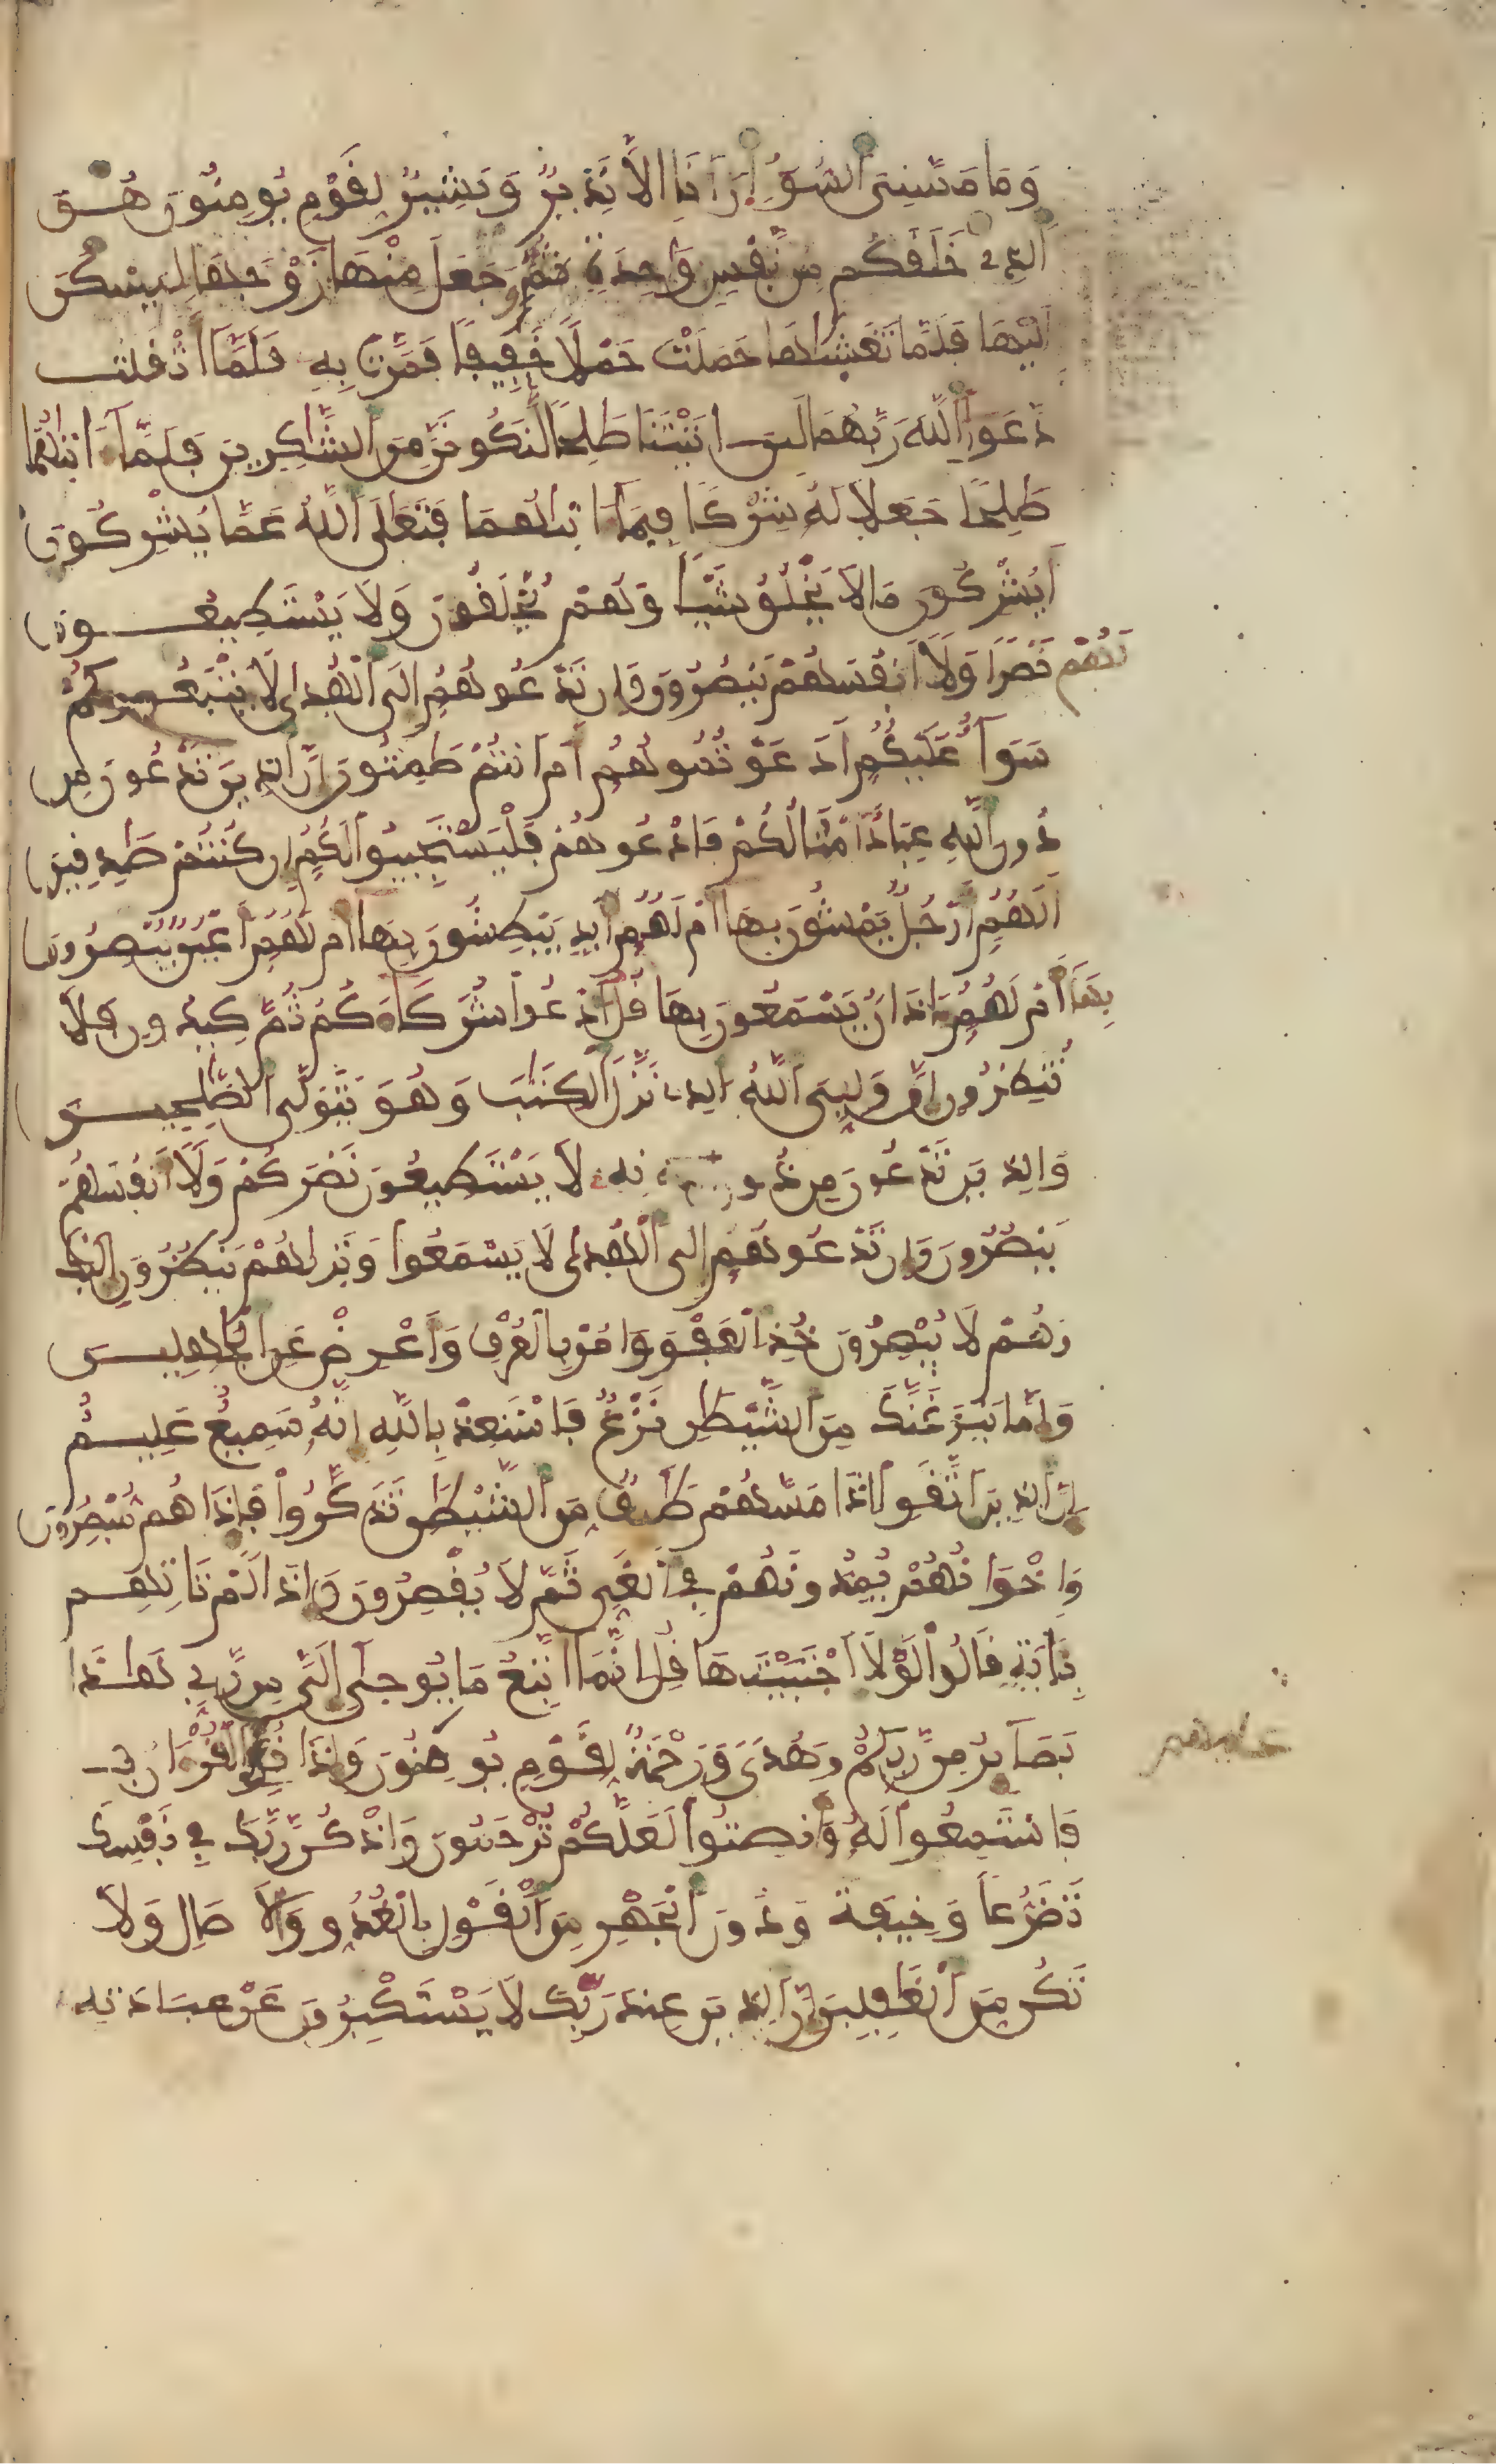 وَمَا مَسَّنِىَ ٱلسُّوٓءُ اِنَ اَنَا إِلَّا نَذِيرٌ وَبَشِيرٌ لِّقَوْمٍ يُومِنُونَ هُوَ
ٱلذِى خَلَقَكُم مِّن نَّفْسٍ وَٰحِدَةٍ ثُمَّ جَعَلَ مِنْهَا زَوْجَهَا لِيَسْكُنَ
إِلَيْهَا فَلَمَّا تَغَشَّىٰهَا حَمَلَتْ حَمْلًا خَفِيفًا فَمَرَّتْ بِهِ فَلَمَّآ أَثْقَلَت
دَّعَوَا ٱللَّهَ رَبَّهُمَا لَئِنَ اتَيْتَنَا صَٰلِحًا لَّنَكُونَنَّ مِنَ ٱلشَّٰكِرِينَ فَلَمَّآ ءَاتَىٰهُمَا
صَٰلِحًا جَعَلَا لَهُ شِرْكًا فِيمَآ ءَاتَىٰهُمَا فَتَعَٰلَى ٱللَّهُ عَمَّا يُشْرِكُونَ
أَيُشْرِكُونَ مَا لَا يَخْلُقُ شَيْـًٔا وَهُمْ يُخْلَقُونَ وَلَا يَسْتَطِيعُونَ
لَهُمْ نَصْرًا وَلَآ أَنفُسَهُمْ يَنصُرُونَ وَإِن تَدْعُوهُمُ إِلَى ٱلْهُدَىٰ لَا يَتْبَعُوكُمْ
سَوَآءٌ عَلَيْكُمُ أَدَعَوْتُمُوهُمُ أَمَ اَنتُمْ صَٰمِتُونَ إِنَّ ٱلذِينَ تَدْعُونَ مِن
دُونِ ٱللَّهِ عِبَادٌ اَمْثَالُكُمْ فَادْعُوهُمْ فَلْيَسْتَجِيبُوا۟ لَكُمُ إِن كُنتُمْ صَٰدِقِينَ
أَلَهُمُ أَرْجُلٌ يَمْشُونَ بِهَآ أَمْ لَهُمُ أَيْدٍ يَبْطِشُونَ بِهَآ أَمْ لَهُمُ أَعْيُنٌ يُبْصِرُونَ
بِهَآ أَمْ لَهُمُ ءَاذَانٌ يَسْمَعُونَ بِهَا قُلُ ٱدْعُوا۟ شُرَكَآءَكُمْ ثُمَّ كِيدُونِ فَلَا
تُنظِرُونِ إِنَّ وَلِيِّىَ ٱللَّهُ ٱلذِى نَزَّلَ ٱلْكِتَٰبَ وَهُوَ يَتَوَلَّى ٱلصَّٰلِحِينَ
وَالذِينَ تَدْعُونَ مِن دُونِهِ لَا يَسْتَطِيعُونَ نَصْرَكُمْ وَلَآ أَنفُسَهُمْ
يَنصُرُونَ وَإِن تَدْعُوهُمُ إِلَى ٱلْهُدَىٰ لَا يَسْمَعُوا۟ وَتَرَىٰهُمْ يَنظُرُونَ إِلَيْكَ
وَهُمْ لَا يُبْصِرُونَ خُذِ ٱلْعَفْوَ وَامُرْ بِالْعُرْفِ وَأَعْرِضْ عَنِ ٱلْجَٰهِلِينَ
وَإِمَّا يَنزَغَنَّكَ مِنَ ٱلشَّيْطَٰنِ نَزْغٌ فَاسْتَعِذْ بِاللَّهِ إِنَّهُ سَمِيعٌ عَلِيمٌ
إِنَّ ٱلذِينَ ٱتَّقَوِا۟ اِذَا مَسَّهُمْ طَٰٓئِفٌ مِّنَ ٱلشَّيْطَٰنِ تَذَكَّرُوا۟ فَإِذَا هُم مُّبْصِرُونَ
وَإِخْوَٰنُهُمْ يُمِدُّونَهُمْ فِى ٱلْغَىِّ ثُمَّ لَا يُقْصِرُونَ وَإِذَا لَمْ تَاتِهِم
بِـَٔايَةٍ قَالُوا۟ لَوْلَا ٱجْتَبَيْتَهَا قُلِ اِنَّمَآ أَتَّبِعُ مَا يُوحَىٰٓ إِلَىَّ مِن رَّبِّى هَٰذَا
بَصَآئِرُ مِن رَّبِّكُمْ وَهُدًى وَرَحْمَةٌ لِّقَوْمٍ يُومِنُونَ وَإِذَا قُرِئَ ٱلْقُرْءَانُ
فَاسْتَمِعُوا۟ لَهُ وَأَنصِتُوا۟ لَعَلَّكُمْ تُرْحَمُونَ وَاذْكُر رَّبَّكَ فِى نَفْسِكَ
تَضَرُّعًا وَخِيفَةً وَدُونَ ٱلْجَهْرِ مِنَ ٱلْقَوْلِ بِالْغُدُوِّ وَالَاصَالِ وَلَا
تَكُن مِّنَ ٱلْغَٰفِلِينَ إِنَّ ٱلذِينَ عِندَ رَبِّكَ لَا يَسْتَكْبِرُونَ عَنْ عِبَادَتِهِ